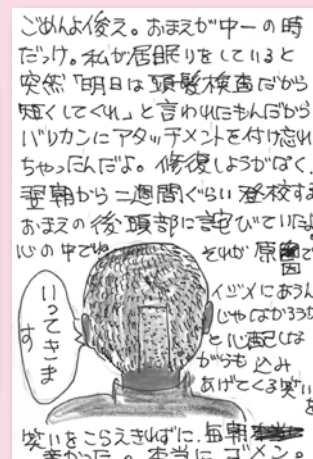 ごめんよ俊え。おまえが中一の時
だっけ。私が居眠りをしていると
突然「明日は頭髪検査だから
短くしてくれ」と言われたもんだから
バリカンにアタッチメントを付け忘れ
ちゃったんだよ。修復しようがなく、
翌朝から二週間ぐらい登校する
おまえの後頭部に詫びていたよ
心の中でね
それが原因で
イジメにあうん
じゃなかろうか
と心配しな
がらも込み
あげてくる笑い
を
いってきま
す
笑いをこらえきれずに、毎朝
辛かった。本当にゴメン。